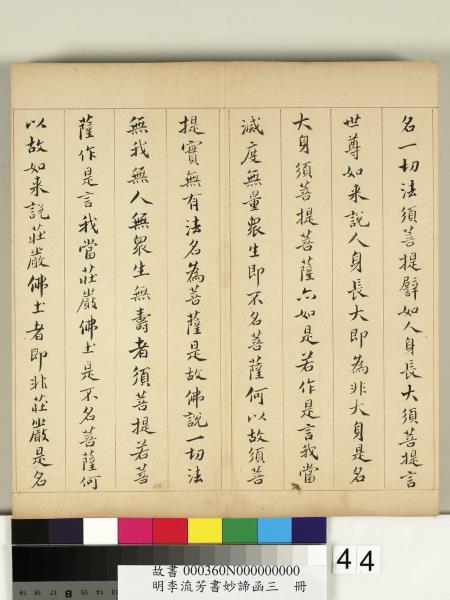 名一切法須菩提譬如人身長大須菩提言
世尊如来說人身長大即為非大身是名
大身須菩提菩薩亦如是若作是言我當
滅度無量衆生即不名菩薩何以故須菩
提實無有法名為菩薩是故佛說一切法
無我無人無衆生無壽者須菩提若菩
薩作是言我當莊嚴佛土是不名菩薩何
以故如来說莊嚴佛土者即非莊嚴是名
44
故書 000360N000000000
明李流芳書妙諦函三 冊
19 18 17 16 15
B